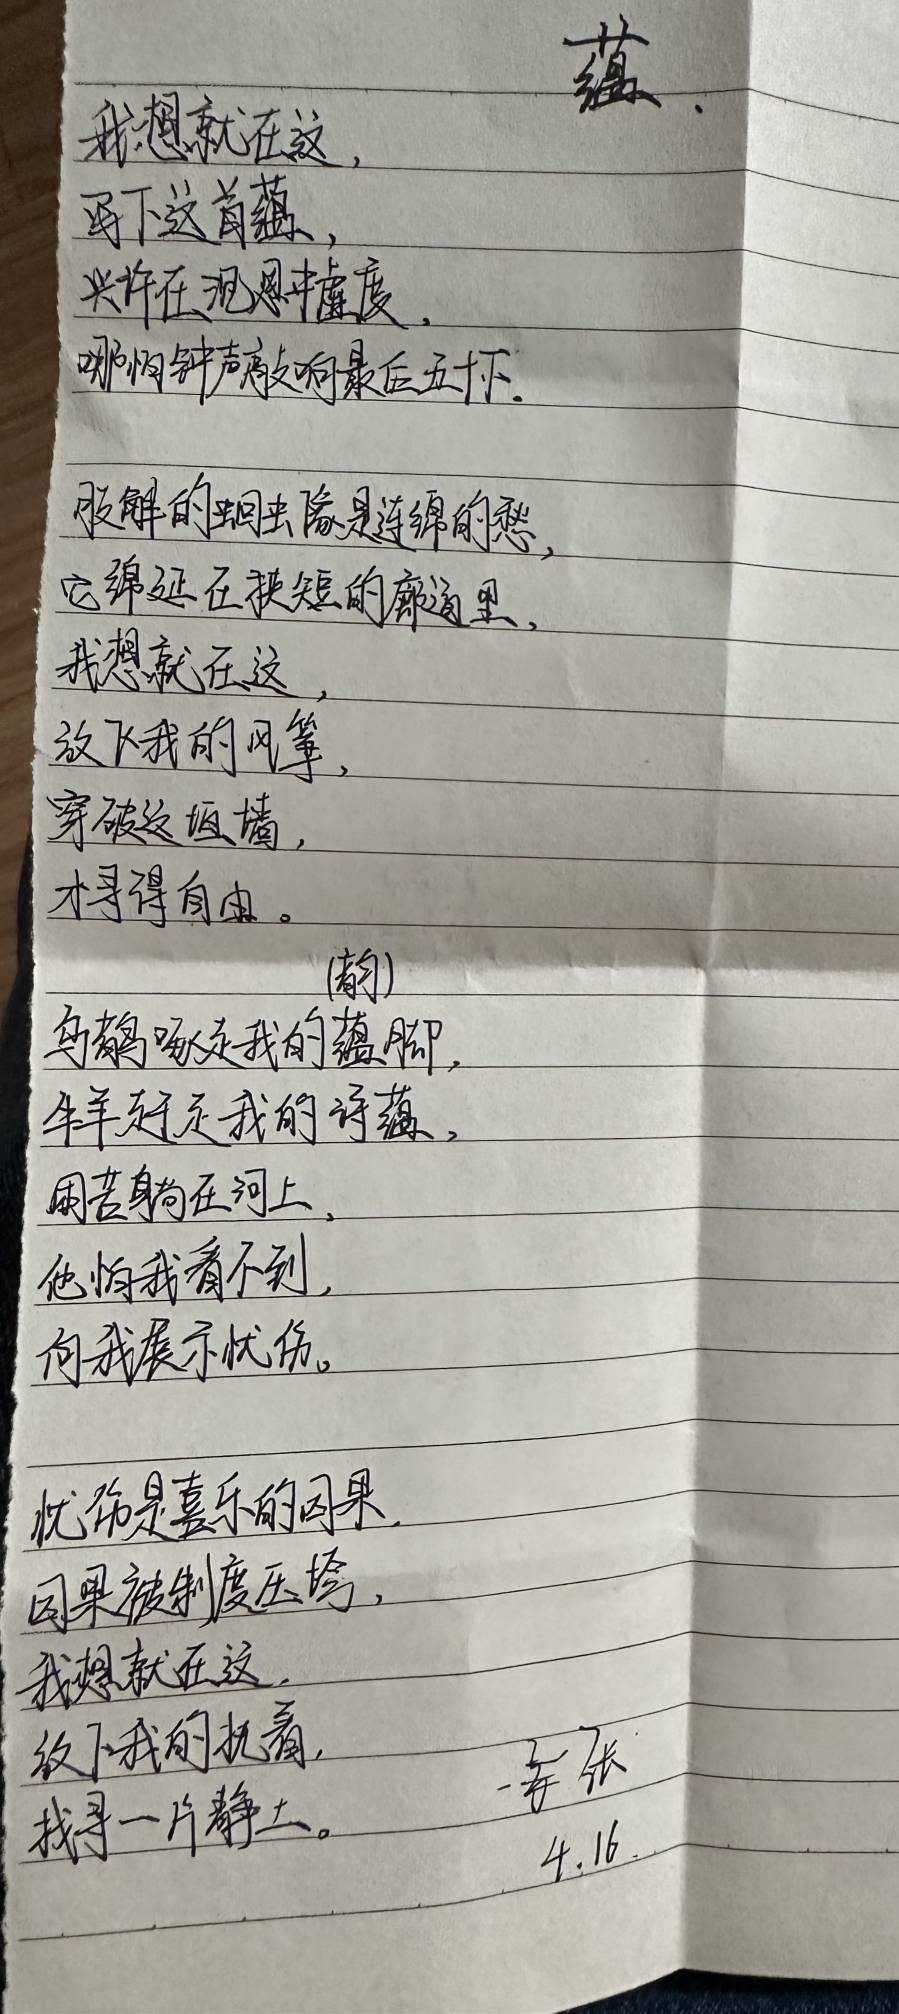 蕴.
我想就在这,
写下这首蕴,
兴许在泥思中虚度,
哪怕钟声敲响最后五下.
肢解的蛔虫像是连绵的愁,
它绵延在狭短的廊道里,
我想就在这,
放飞我的风筝,
穿破这垣墙,
才寻得自由。
(韵)
乌鹊啄走我的蕴脚,
牛羊赶走我的诗蕴,
困苦躺在河上,
他怕我看不到,
向我展示忧伤。
忧伤是喜乐的因果,
因果被制度压垮,
我想就在这,
放下我的执着,
找寻一片静土。
张
4.16.